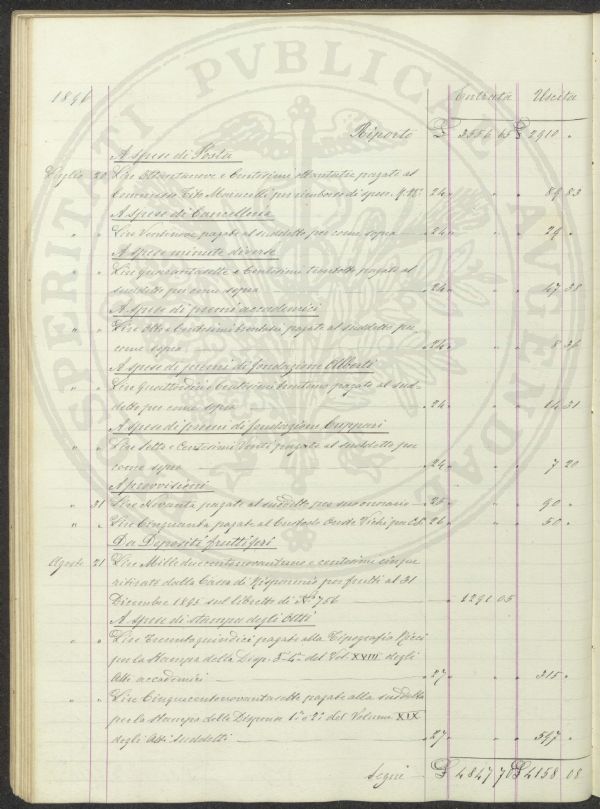 1896 Entrata Uscita
Riporto £ 3556 65 £ 2910 "
A spese di Posta
Luglio 20 Lire Ottantanove e Centesimi ottantatre pagate al
Tito Marucelli per rimborso di spese 24 " " " 89 83
A spese di Cancelleria
" " Lire Ventinove pagate al suddetto per come sopra 24 " " " 29 "
A spese minute diverse
" " Lire Quarantasette e Centesimi trentotto pagate al
suddetto per come sopra 24 " " " 47 38
A spese di premi accademici
" " Lire Otto e Centesimi pagate al suddetto per
come sopra 24 " " " 8 36
A spese di premi di fondazione Alberti
" " Lire Quattordici e Centesimi trentuno pagate al sud-
detto per come sopra 24 " " " 14 31
A spese di premi di fondazione Cuppari
" " Lire Sette e Centesimi Venti pagate al suddetto per
come sopra 24 " " " 7 20
A provvisioni
" 31 Lire Novanta pagate al suddetto per suo onorario 25 " " " 90 "
" " Lire Cinquanta pagate al Custode Vichi 26 " " " 50 "
Da Depositi fruttiferi
Agosto 21 Lire Mille duecentonovantuno e centesimi cinque
ritirate dalla Cassa di Risparmio per frutti al 31
Dicembre 1895 sul libretto di N.º 756 " 1291 05
A spese di stampa degli Atti
" " Lire Trecentoquindici pagate alla Tipografia Ricci
per la stampa della Disp. 3ª 4ª del Vol. XVIII degli
Atti accademici 27 " " " 315 "
" " Lire Cinquecentonovantasette pagate alla suddetta
per la stampa della Dispensa 1ª e 2ª del Volume XIX
degli Atti suddetti 27 " " " 597 "
Segue £ 4847 70 £ 4158 08